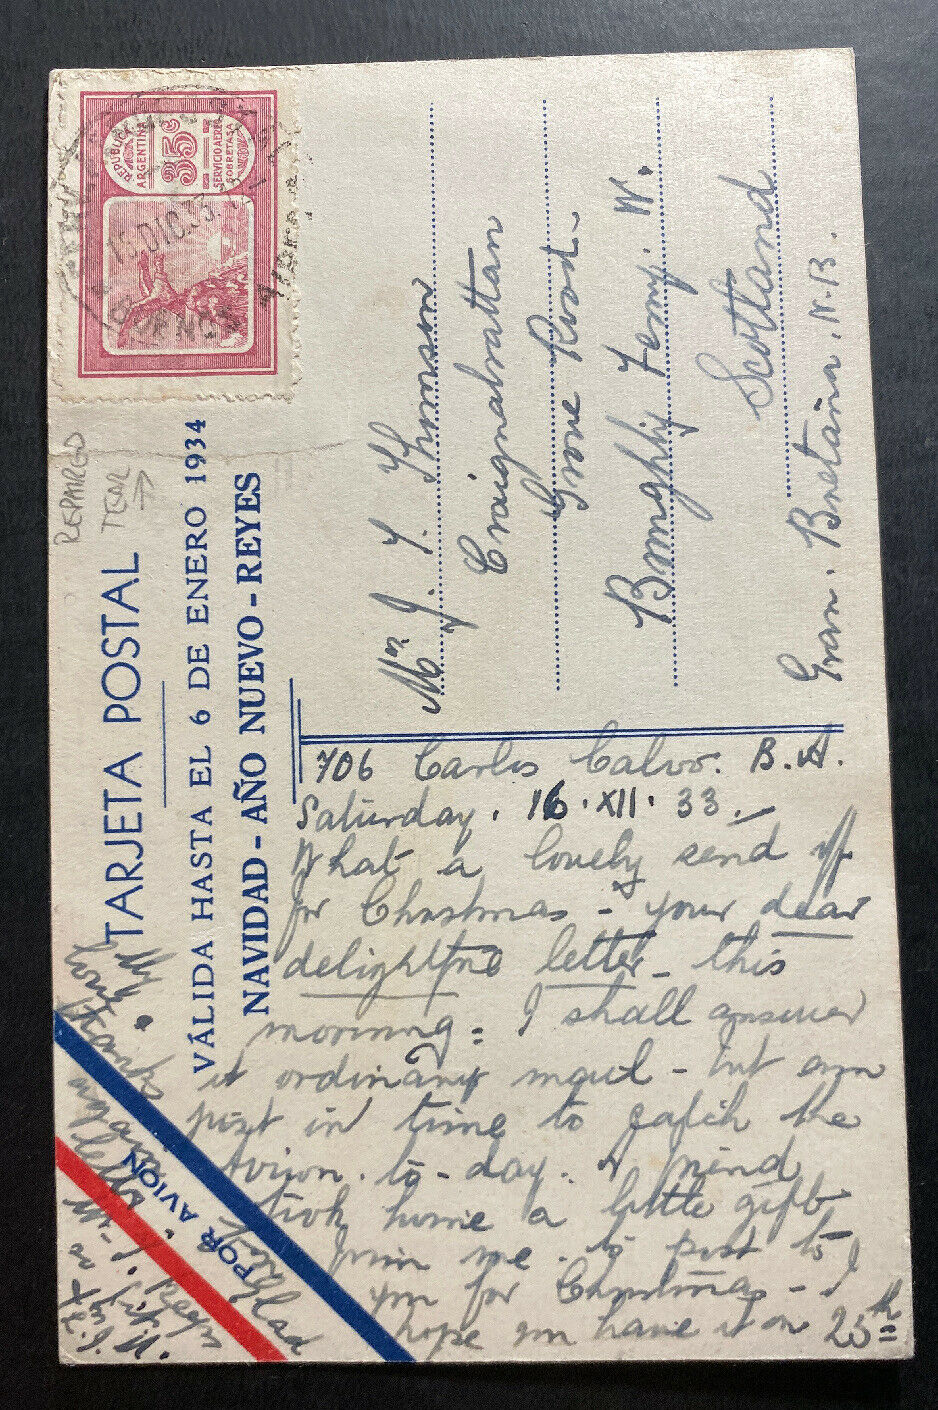 REPUBLICA
ARGENTINA
35c
SERVICIO AEREO
SOBRETASA
DIC. 33
BUENOS AIRES
REPAIRED
TEAR
TARJETA POSTAL
VÁLIDA HASTA EL 6 DE ENERO 1934
NAVIDAD - AÑO NUEVO - REYES
Mrs J. Y. Thomson
Craignahattan
Grove Road
Broughty Ferry. W.
Scotland
Gran. Bretaña. N.B.
706 Carlos Calvo. B.A.
Saturday. 16. XII. 33.
What a lovely send off
for Christmas - your dear
delightful letter this
morning = I shall answer
it ordinary mail - but am
just in time to catch the
Avion to-day. A friend
took home a little gift
from me to post to
you for Christmas - I
hope you have it on 25th
POR AVION
My
thanks
again
letter
glad